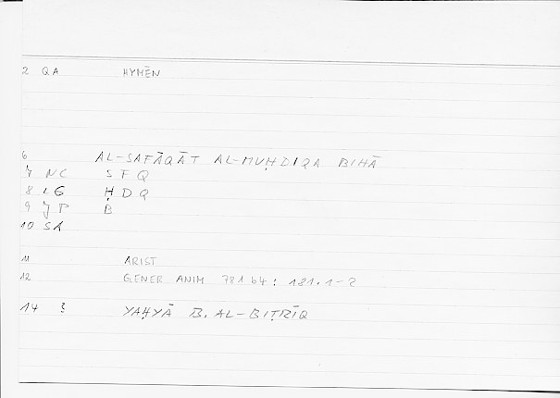 2 QA HYMĒN
6 AL-SAFĀQĀT AL-MUḤDIQA BIHĀ
7 NC SFQ
8 LG ḤDQ
9 JP B
10 SA
11 ARIST
12 GENER ANIM 781 b4 : 181.1-2
14 3 YAḤYĀ B. AL-BIṬRĪQ